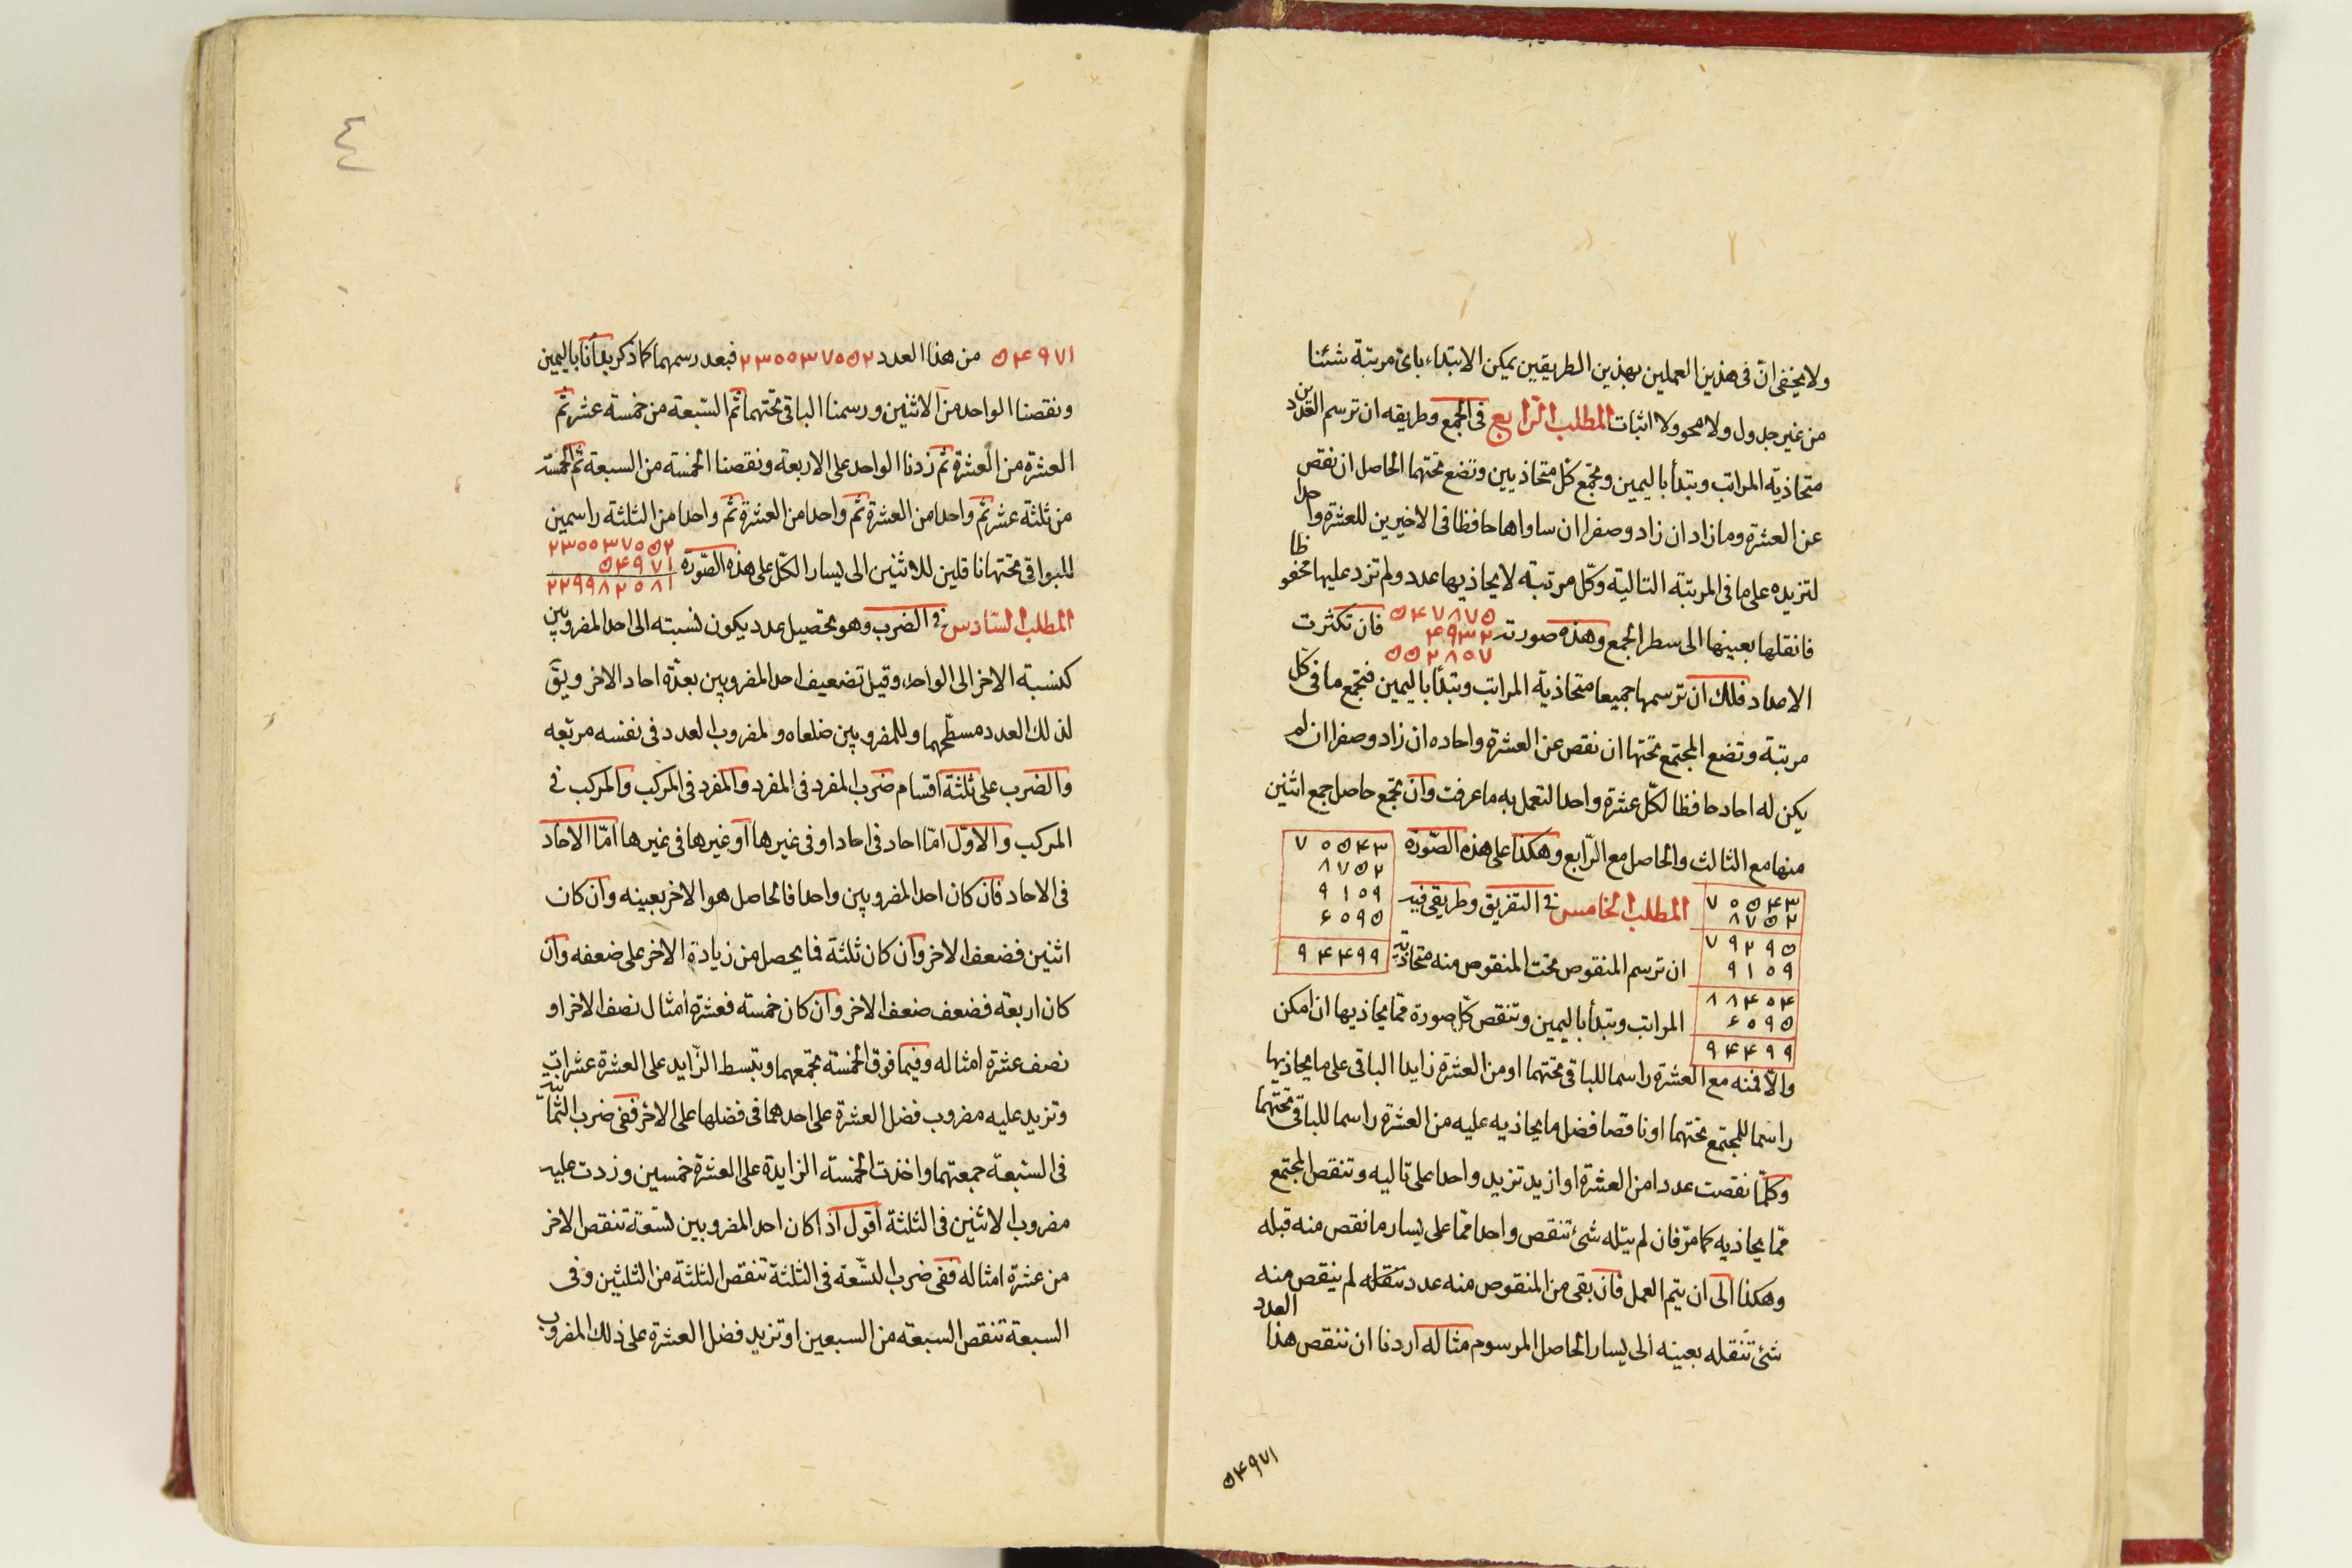 ولا يخفى انّ فى هذين العملين بهذين الطريقين يمكن الابتداء باىّ مرتبة شئنا
من غير جدول ولا محو ولا اثبات المطلب الرّابع فى الجمع وطريقه ان ترسم العددين
متحاذية المراتب وتبتدأ باليمين وتجمع كل متحاذيين وتضع تحتهما الحاصل ان نقص
عن العشرة وما زاد ان زاد وصفرا ان ساواها حافظا فى الاخيرين للعشرة واحدا
لتزيده على ما فى المرتبة التالية وكل مرتبة لا يحاذيها عدد ولم تزد عليها محفوظا
فانقلها بعينها الى سطر الجمع وهذه صورته
۵۴۷۸۷۵
۴۹۳۲
۵۵۲۸۰۷
فان تكثرت
الاعداد فلك ان ترسمها جميعا متحاذية المراتب وتبتدأ باليمين فتجمع ما فى كل
مرتبة وتضع المجتمع تحتها ان نقص عن العشرة واحاده ان زاد وصفرا ان لم
يكن له احاد حافظا لكل عشرة واحدا لتعمل به ما عرفت وان تجمع حاصل جمع اثنين
منها مع الثالث والحاصل مع الرّابع وهكذا على هذه الصّورة
۷۰۵۴۳
۸۷۵۲
۹۱۰۹
۶۰۹۵
۹۴۴۹۹
۷۰۵۴۳
۸۷۵۲
۷۹۲۹۵
۹۱۰۹
۸۸۴۰۴
۶۰۹۵
۹۴۴۹۹
المطلب الخامس فى التفريق وطريقى فيه
ان ترسم المنقوص تحت المنقوص منه متحاذية
المراتب وتبتدأ باليمين وتنقص كل صورة ممّا يحاذيها ان امكن
والّا فمنه مع العشرة راسما للباقى تحتهما او من العشرة زايدا الباقى على ما يحاذيها
راسما للمجتمع تحتهما او ناقصا فضل ما يحاذيه عليه من العشرة راسما للباقى تحتهما
وكلّما نقصت عددا من العشرة او ازيد تزيد واحدا على تاليه وتنقص المجتمع
ممّا يحاذيه كما مرّ فان لم يتله شئ تنقص واحدا ممّا على يسار ما نقص منه قبله
وهكذا الى ان يتم العمل فان بقى من المنقوص منه عدد تنقله لم ينقص منه
شئ تنقله بعينه الى يسار الحاصل المرسوم مثاله اردنا ان ننقص هذا العدد
۵۴۹۷۱
٤٤
۵۴۹۷۱ من هذا العدد ۲۳۰۰۳۷۵۵۲ فبعد رسمهما كما ذكر بدأنا باليمين
ونقصنا الواحد من الاثنين ورسمنا الباقى تحتهما ثم السّبعة من خمسة عشر ثم
العشرة من العشرة ثم زدنا الواحد على الاربعة ونقصنا الخمسة من السبعة ثم الخمسة
من ثلثة عشر ثم واحدا من العشرة ثم واحدا من العشرة ثم واحدا من الثلثة راسمين
للبواقى تحتها ناقلين للاثنين الى يسار الكل على هذه الصّورة
۲۳۰۰۳۷۰۵۲
۵۴۹۷۱
۲۲۹۹۸۲۵۸۱
المطلب السّادس فى الضرب وهو تحصيل عدد يكون نسبته الى احد المضروبين
كنسبة الاخر الى الواحد وقيل تضعيف احد المضروبين بعدّة احاد الاخر ويق
لذلك العدد مسطّحهما وللمضروبين ضلعاه ولمضروب العدد فى نفسه مربّعه
والضرب على ثلثة اقسام ضرب المفرد فى المفرد والمفرد فى المركب والمركب فى
المركب والاوّل امّا احاد فى احاد او فى غيرها او غيرها فى غيرها امّا الاحاد
فى الاحاد فان كان احد المضروبين واحدا فالحاصل هو الاخر بعينه وان كان
اثنين فضعف الاخر وان كان ثلثة فما يحصل من زيادة الاخر على ضعفه وان
كان اربعة فضعف ضعف الاخر وان كان خمسة فعشرة امثال نصف الاخر او
نصف عشرة امثاله وفيما فوق الخمسة تجمعهما وتبسط الزّايد على العشرة عشرات
وتزيد عليه مضروب فضل العشرة على احدهما فى فضلها على الاخر ففى ضرب الثمانية
فى السّبعة جمعتهما واخذت الخمسة الزايدة على العشرة خمسين وزدت عليه
مضروب الاثنين فى الثلثة اقول اذا كان احد المضروبين تسعة تنقص الاخر
من عشرة امثاله ففى ضرب التسّعة فى الثلثة تنقص الثلثة من الثلثين وفى
السبعة تنقص السبعة من السبعين او تزيد فضل العشرة على ذلك المضروب